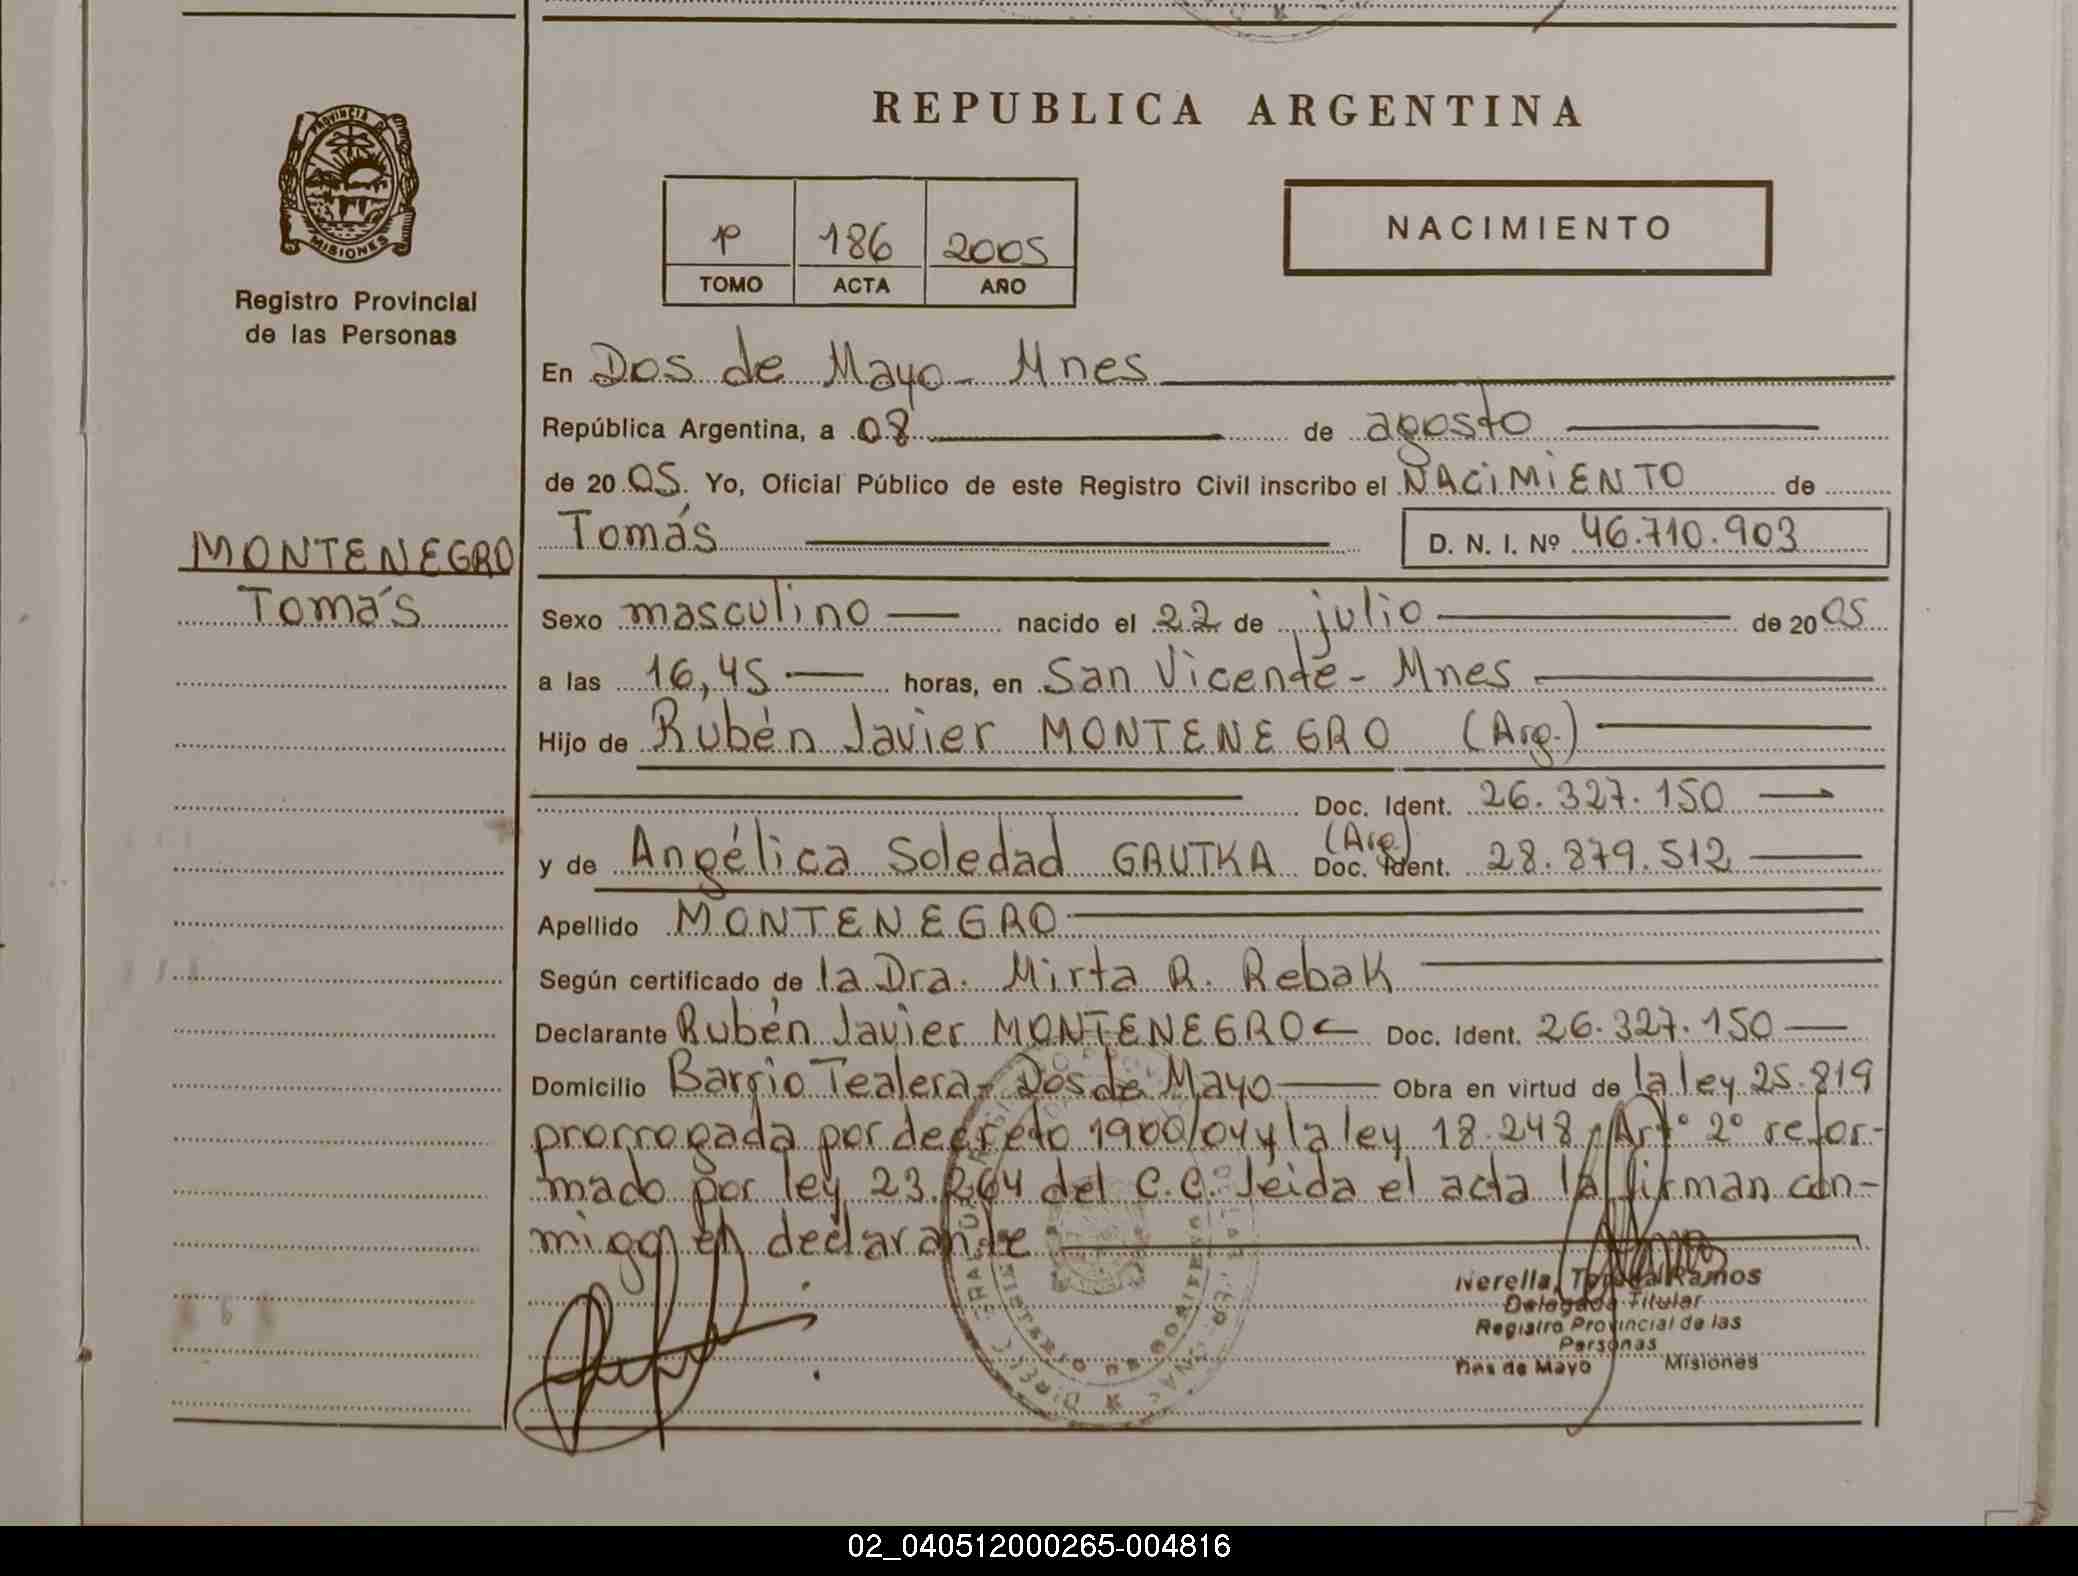 REPUBLICA ARGENTINA
PROVINCIA DE
MISIONES
Registro Provincial
de las Personas
1º 186 2005
TOMO ACTA AÑO
NACIMIENTO
En Dos de Mayo - Mnes
República Argentina, a 08 de agosto
de 2005. Yo, Oficial Público de este Registro Civil inscribo el NACIMIENTO de
MONTENEGRO
Tomás
Tomás D. N. I. Nº 46.710.903
Sexo masculino nacido el 22 de julio de 2005
a las 16,45 horas, en San Vicente - Mnes
Hijo de Rubén Javier MONTENEGRO (Arg.)
Doc. Ident. 26.327.150
y de Angélica Soledad GAUTKA (Arg) Doc. Ident. 28.879.512
Apellido MONTENEGRO
Según certificado de la Dra. Mirta R. Rebak
Declarante Rubén Javier MONTENEGRO Doc. Ident. 26.327.150
Domicilio Barrio Tealera - Dos de Mayo Obra en virtud de la ley 25.819
prorrogada por decreto 1900/04 y la ley 18.248, Artº 2º refor-
mado por ley 23.264 del C.C. leida el acta la firman con-
migo el declarante
Nerella, Teresa Ramos
Delegada Titular
Registro Provincial de las
Personas
Dos de Mayo Misiones
02_040512000265-004816